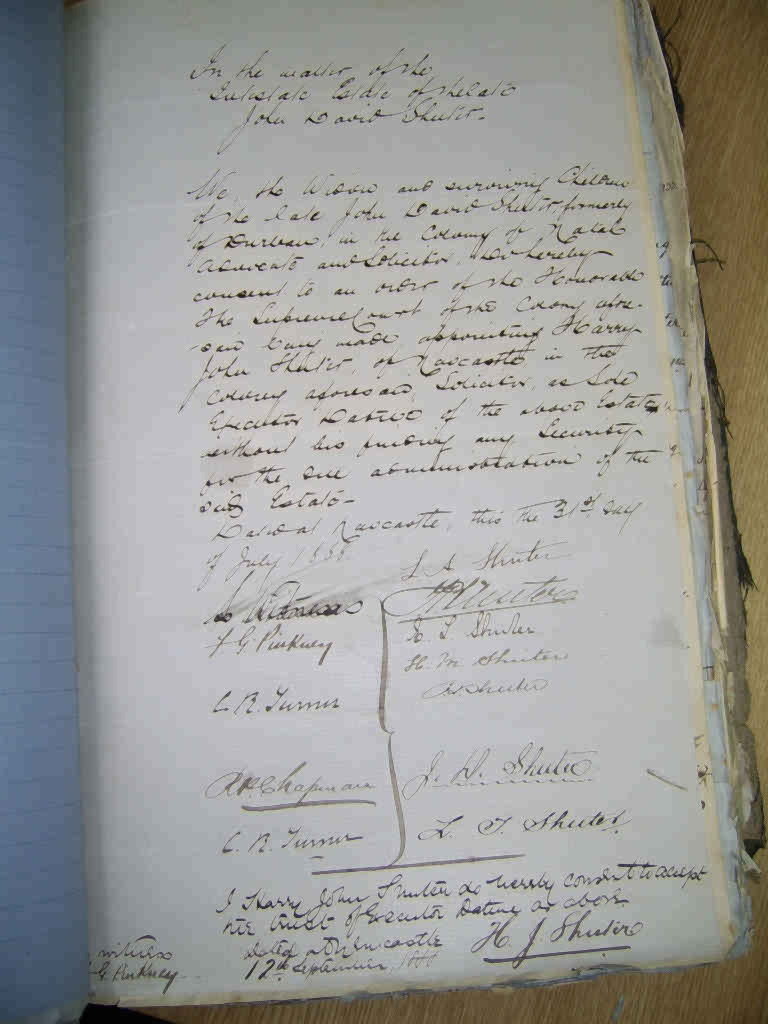 In the matter of the
Intestate Estate of the late
John David Shuter.
We, the Widow and surviving Children
of the late John David Shuter, formerly
of Durban, in the Colony of Natal
Advocate and Solicitor, do hereby
consent to an order of the Honorable
the Supreme Court of the Colony afore-
-said being made, appointing Harry
John Shuter, of Newcastle, in the
Colony aforesaid, Solicitor, as Sole
Executor Dative of the above Estate
without his finding any Security
for the due administration of the
said Estate-
Dated at Newcastle, this the 31st day
of July 1888
L A Shuter
As Witnesses
F G Pinkney
E. L. Shuter
H. M. Shuter
C. R. Turner
Chapman
J. D. Shuter
C. R. Turner
L. T. Shuter
I Harry John Shuter do hereby consent to accept
the trust of Executor Dative as above
Dated at Newcastle
12th September, 1888
H. J. Shuter
witness
G. Pinkney